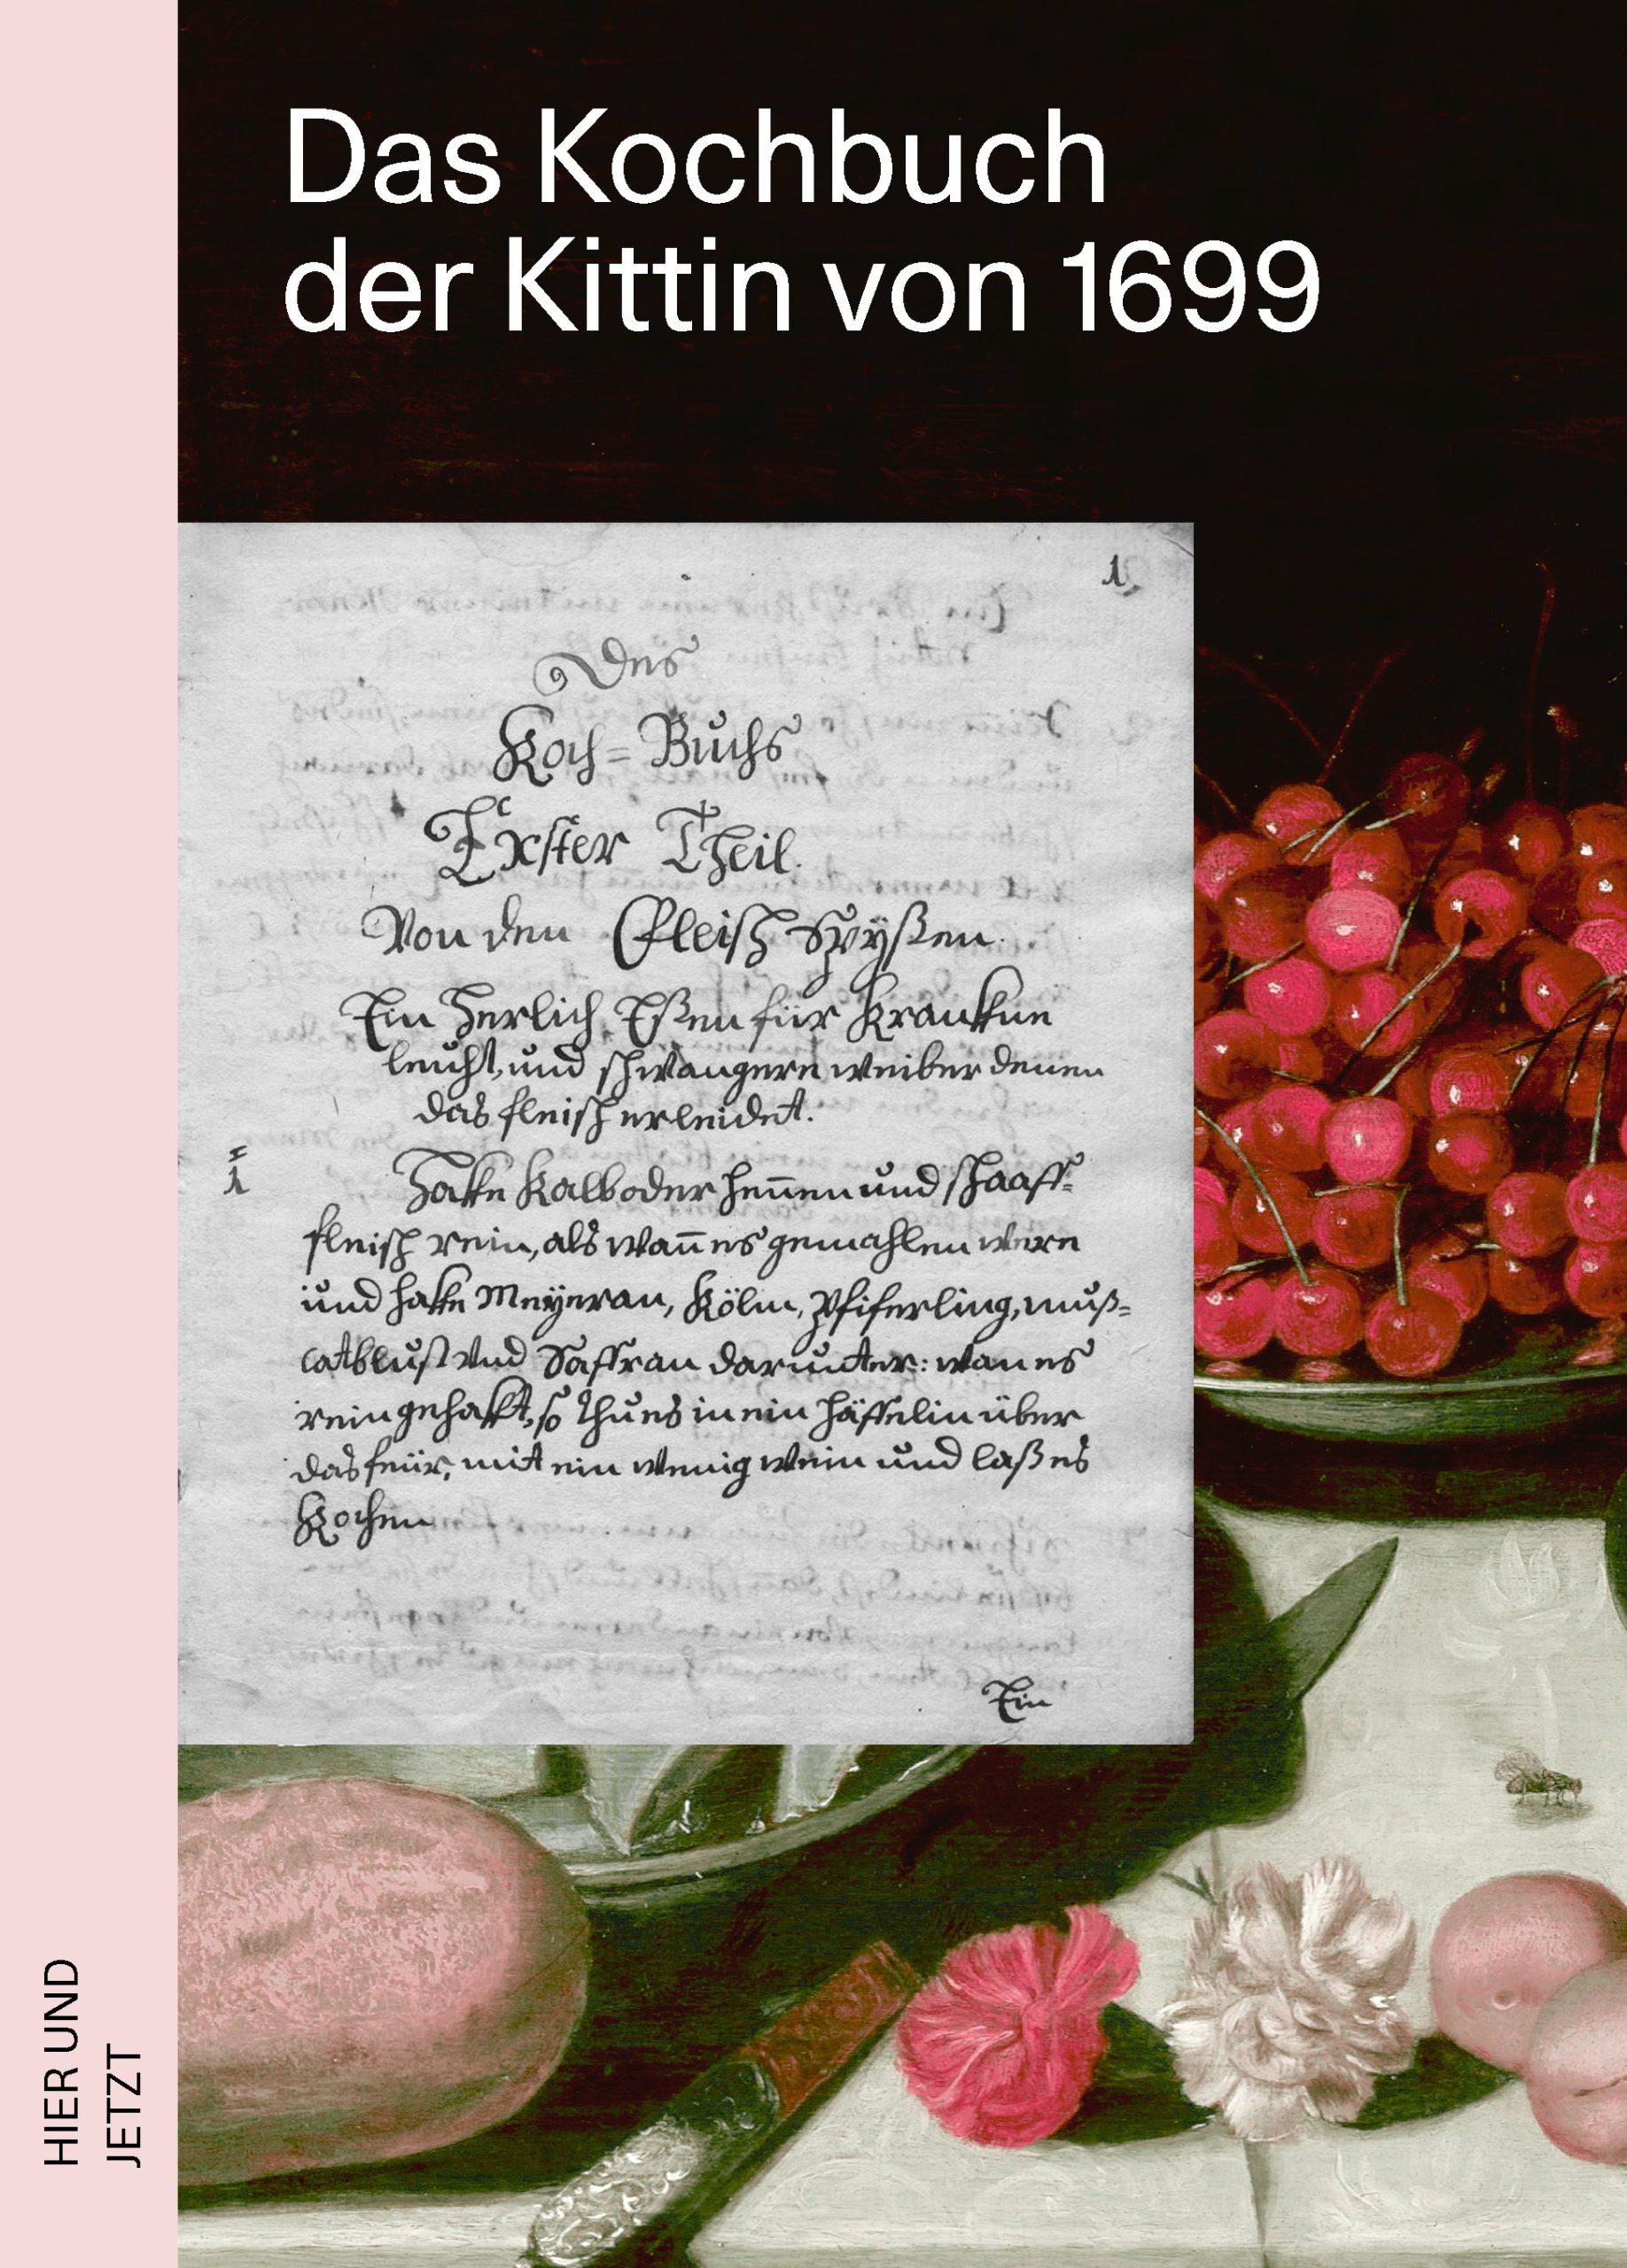 Das Kochbuch
der Kittin von 1699
1.
Des
Koch=Buchs
Erster Theil.
Von den Fleisch Spÿßen.
Ein Herlich Eßen für Krankne
leücht, und schwangere weiber denen
das fleisch erleidet.
1
Hakke Kalb oder hen̄en und schaaff=
fleisch rein, als wan̄ es gemahlen were
und hakke Meÿeran, Kölm, Pfiferling, muß=
catblust und Saffran darunter: wan es
rein gehakkt, so thu es in ein häffelin über
das feür, mit ein wenig wein und laß es
Kochen
Ein
HIER UND
JETZT